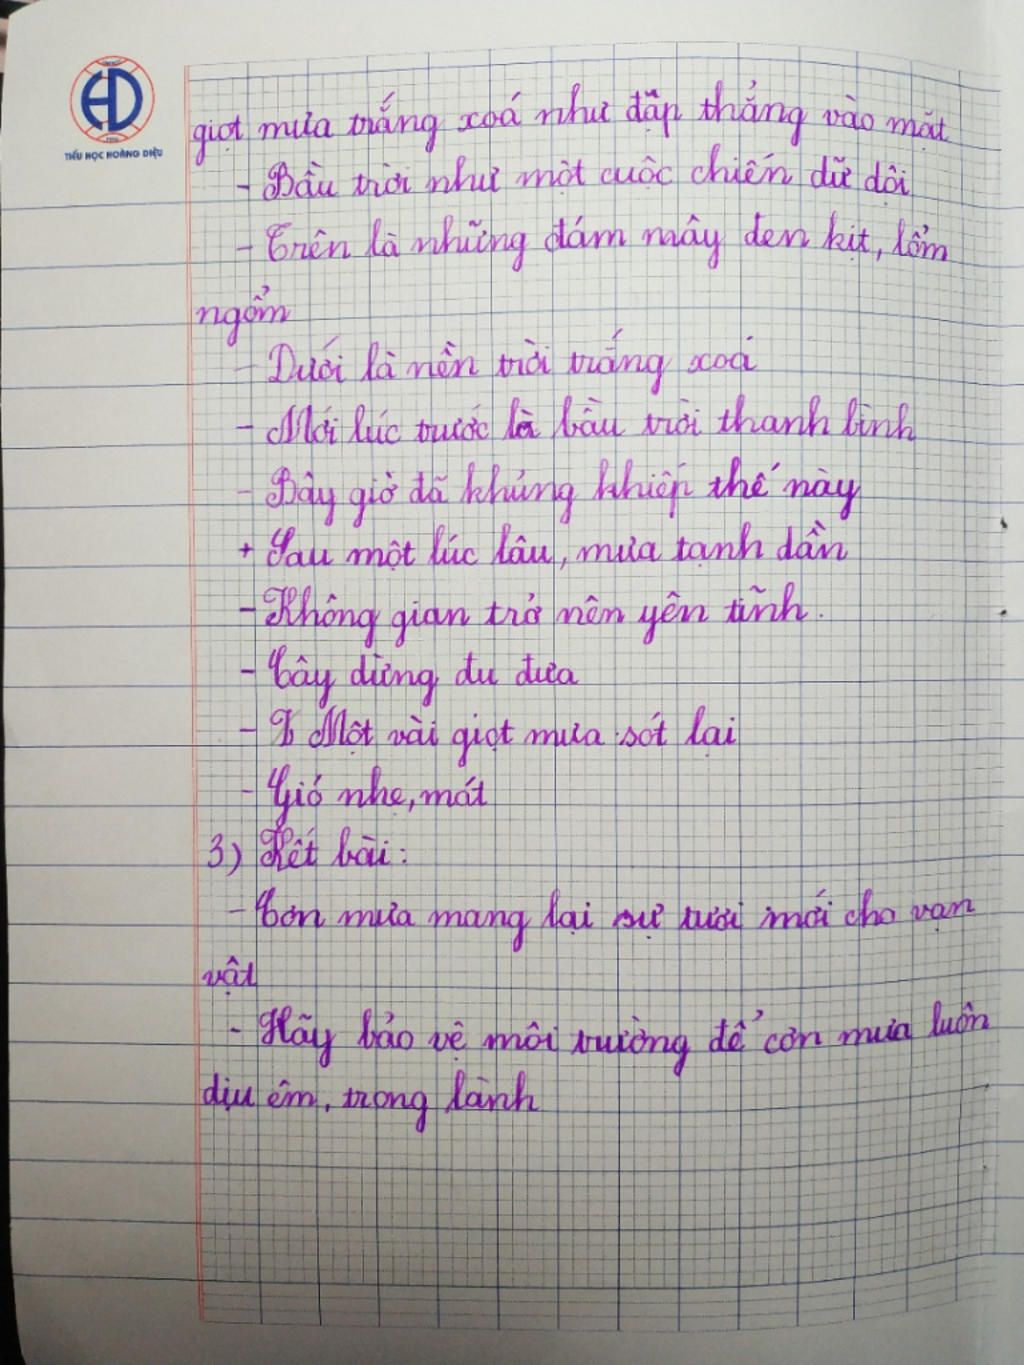 HD
TIỂU HỌC HOÀNG DIỆU
giọt mưa trắng xoá như đập thẳng vào mặt
- Bầu trời như một cuộc chiến dữ dội
- Trên là những đám mây đen kịt, lổm
ngổm
- Dưới là nền trời trắng xoá
- Mới lúc trước là bầu trời thanh bình
- Bây giờ đã khủng khiếp thế này
+ Sau một lúc lâu, mưa tạnh dần
- Không gian trở nên yên tĩnh.
- Cây dừng đu đưa
- Một vài giọt mưa sót lại
- Gió nhẹ, mát
3) Kết bài:
- Cơn mưa mang lại sự tươi mới cho vạn
vật
- Hãy bảo vệ môi trường để cơn mưa luôn
dịu êm, trong lành